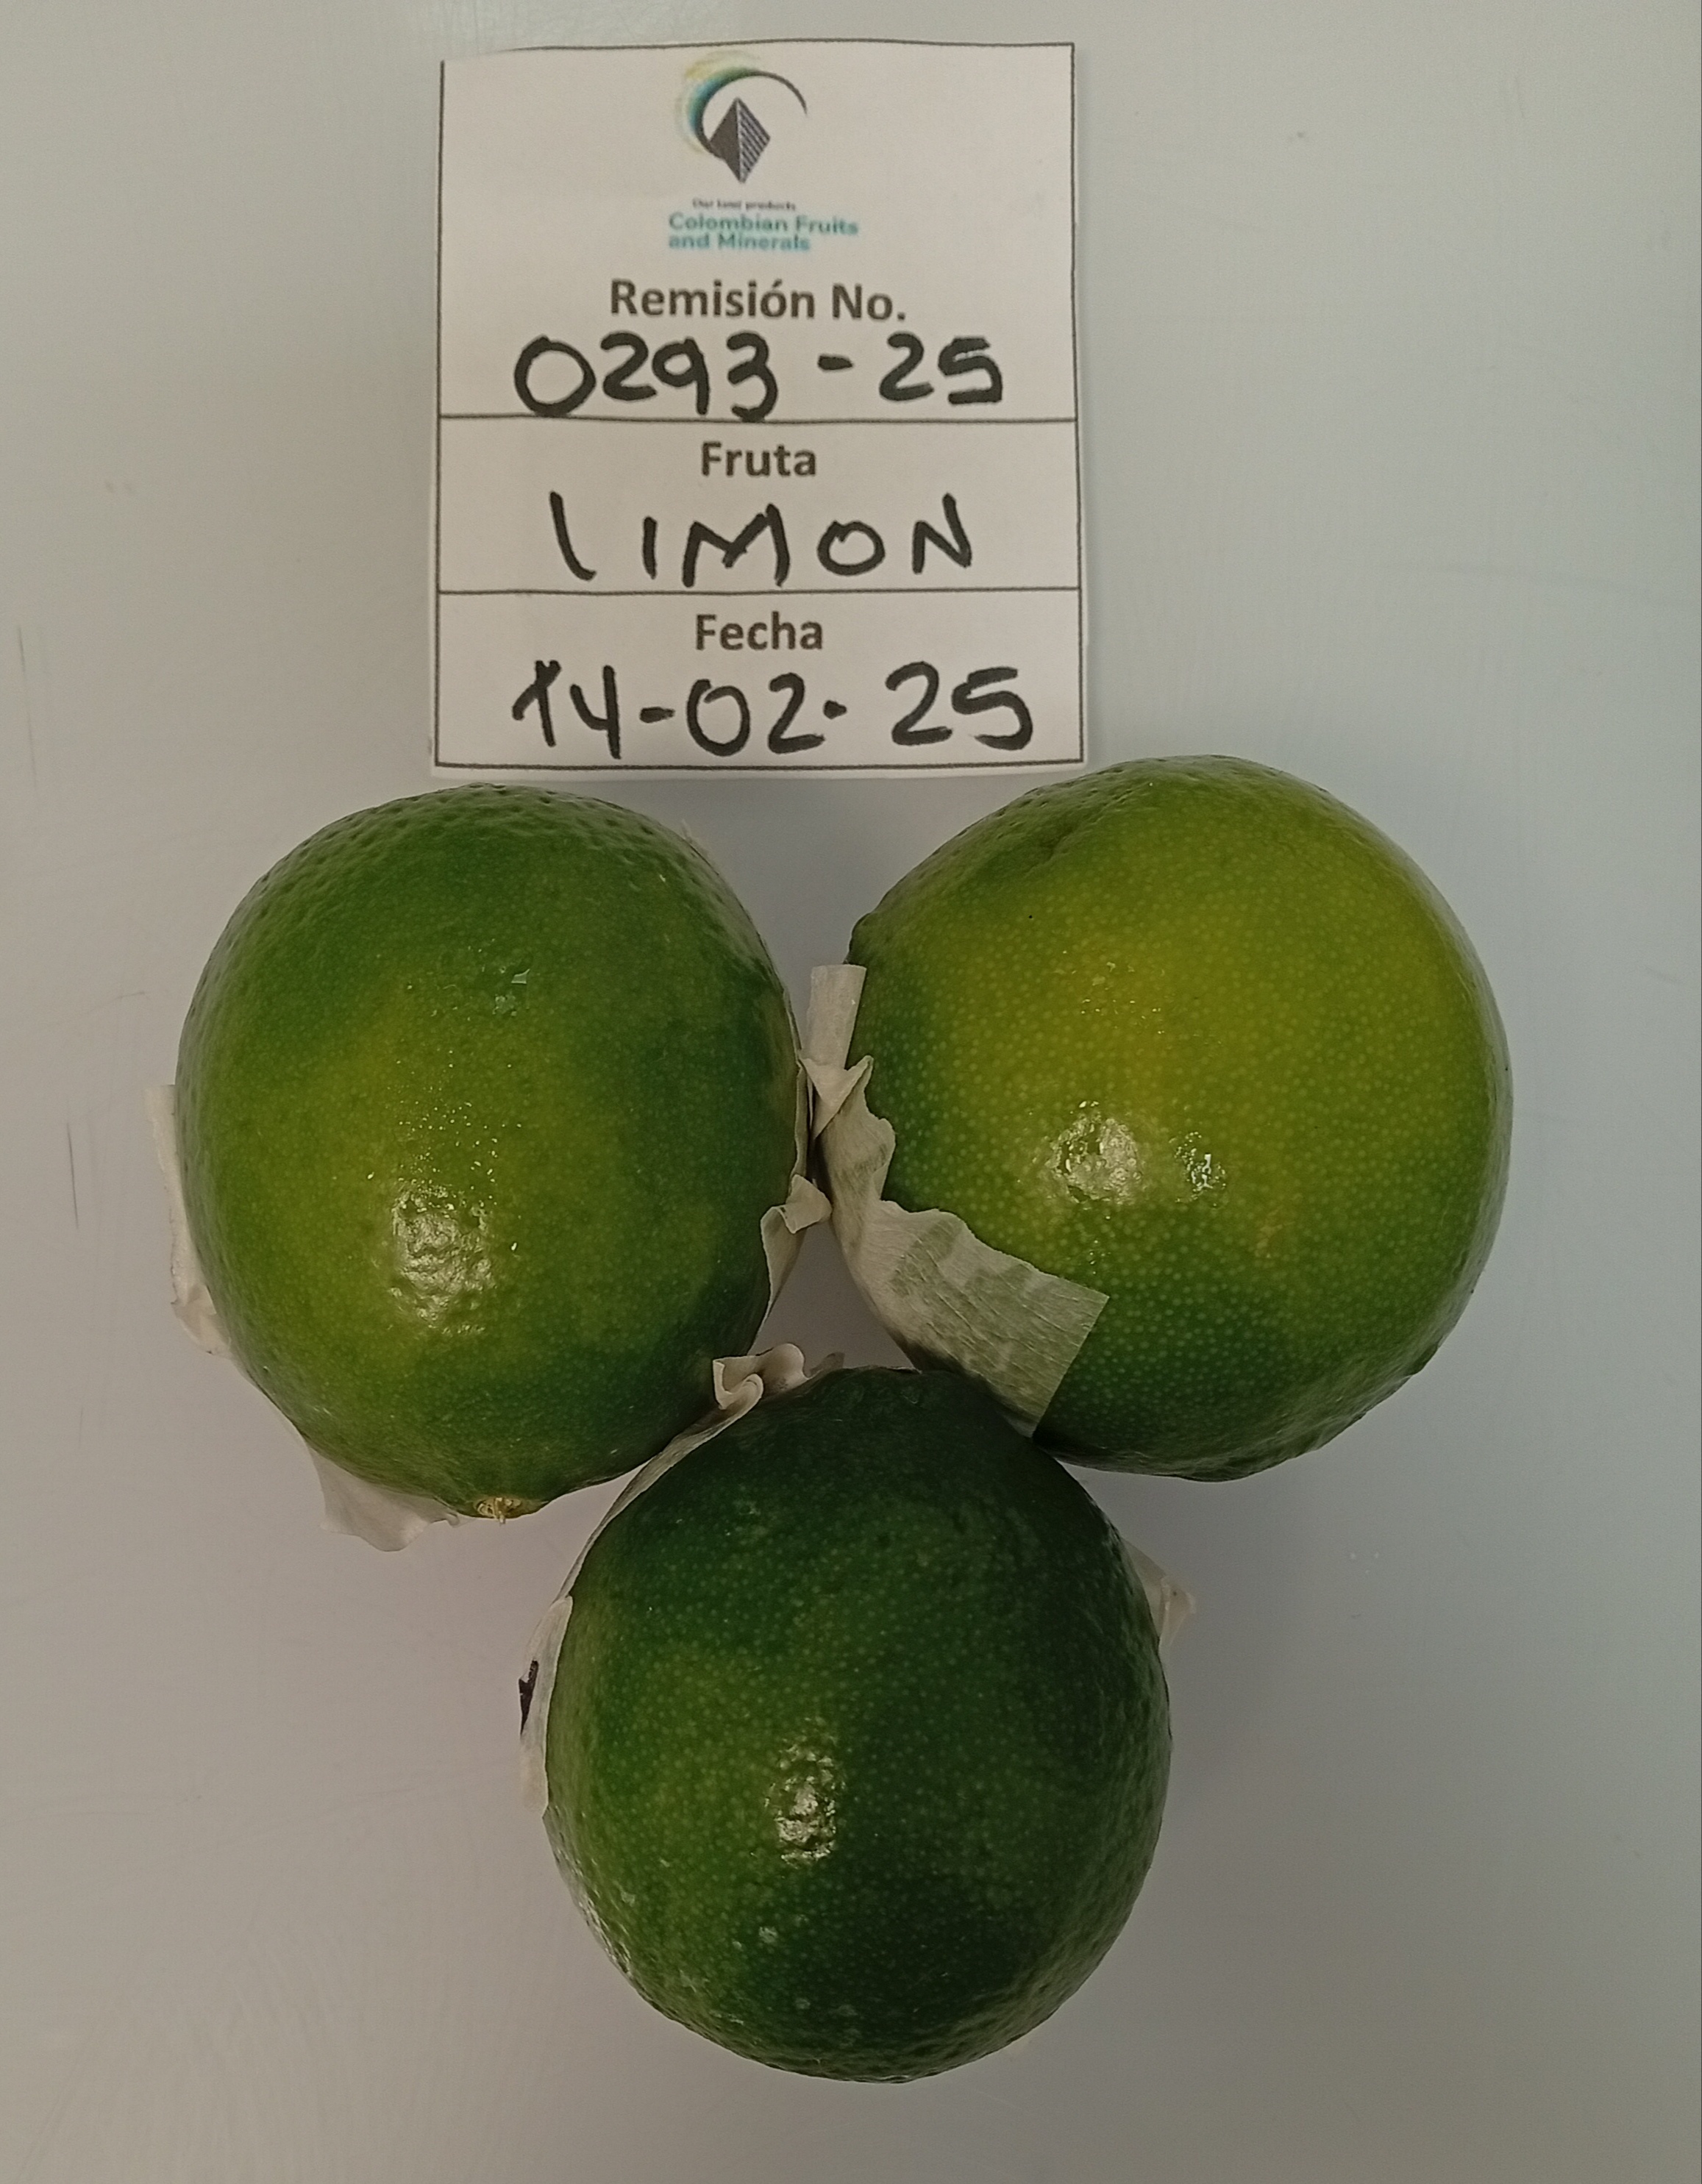 Our land products
Colombian Fruits
and Minerals
Remisión No.
0293-25
Fruta
LIMON
Fecha
14-02-25